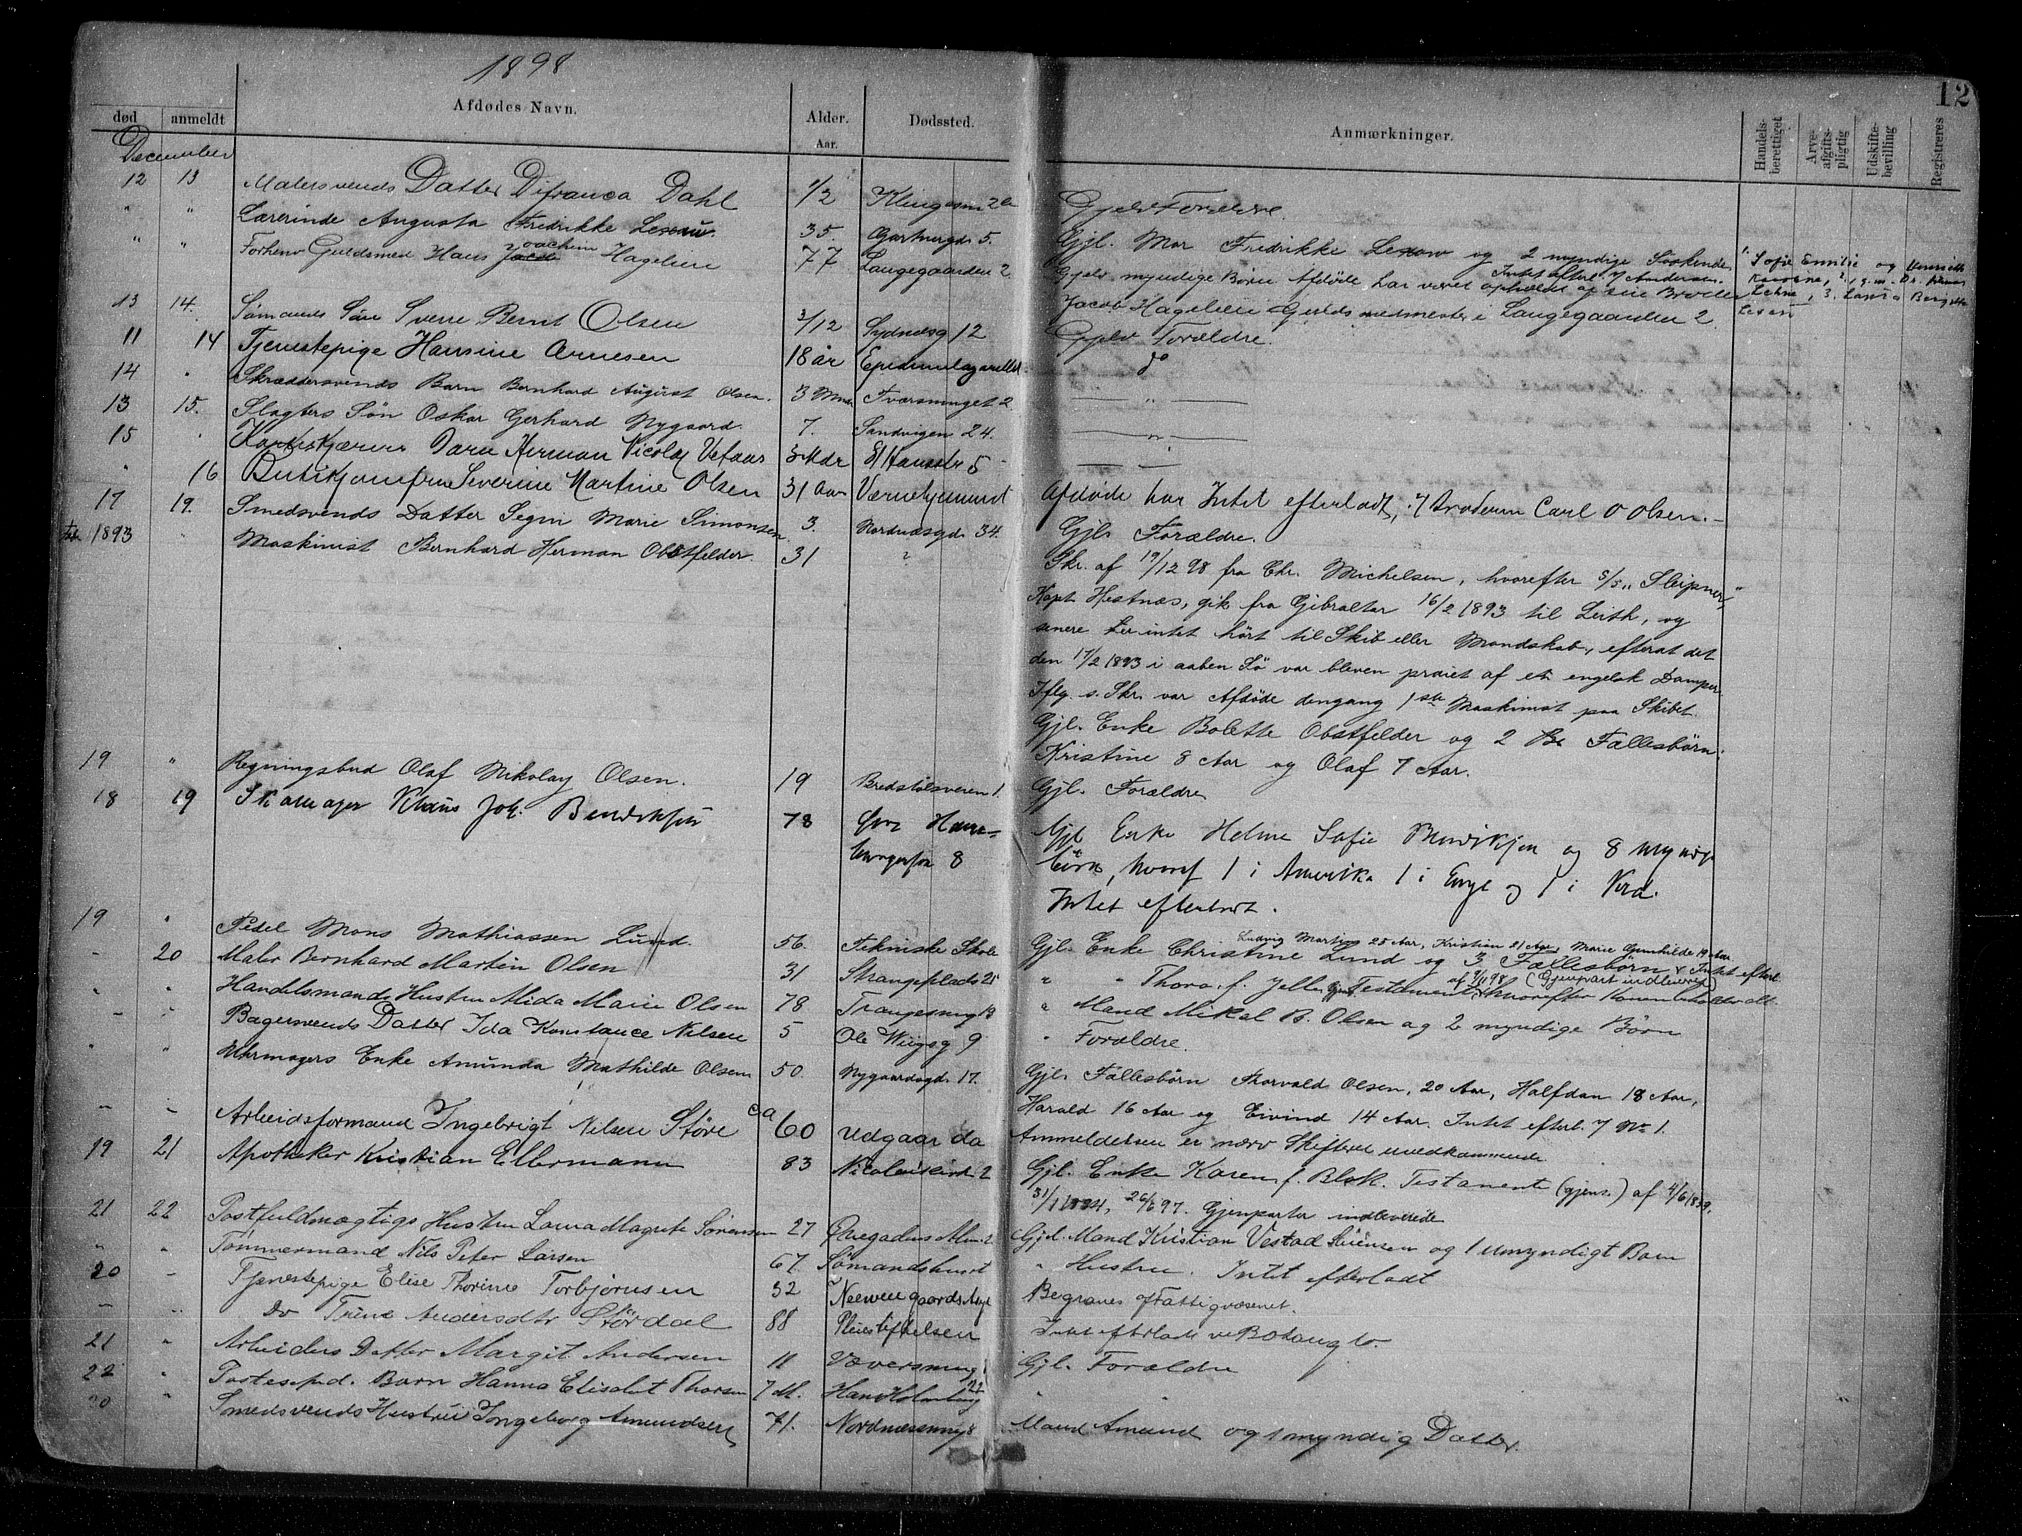 1898
12
død anmeldt Afdødes Navn. Alder. Aar. Dødssted. Anmærkninger. Handels-berettiget Arve-afgifts-pligtig Udskifte-bevilling Registreres
December
12 13 Malersvends Datter Difranca Dahl 1/2 Gjelv Forældre.
" " Lærerinde Augusta Fredrikke Lexau. 35 Gartnergd 5. Gjl. Mor Fredrikke Lexow og 2 myndige Søskende
" " Forhenv Guldsmed Hans Joachim Jacob Hagelien 77 Langegaarden 2 Gjelv myndige Børn Afdøde har været opholdt af sin Broder
Intet efterl. Andersen
Sofie Emilie og
Jacob Hagelien Guldsmedmester i Langegaarden 2.
13 14. Sømands Søn Sverre Bernt Olsen 3/12 Sydnesg 12 Gjelv Forældre.
11 14 Tjenestepige Hansine Arnesen 18 år Epidemilazarettet do
14 " Skræddersvends Barn Bernhard August Olsen. 3 Mndr Tversmuget 2 — " —
13 15. Slagters Søn Oskar Gerhard Nygaard. 7. Sandvigen 24. — " —
15 " Barn Herman Nicolay Vefaas 3 Mdr St Hansstr 5 — " —
" 16 Butikjomfru Severine Martine Olsen 31 Aar Værnehjemmet Afdøde har Intet efterladt, Broderen Carl O Olsen.
17 19. Smedsvends Datter Segni Marie Simonsen 3. Nordnæsgd. 34. Gjl. Forældre.
Feb 1893 " Maskinist Bernhard Herman Obstfelder. 31 ? Skr. af 19/12 98 fra Chr. Michelsen, hvorefter S/S "Sleipner,"
Kapt Hestnæs, gik fra Gibraltar 16/2 1893 til Leith, og
senere er intet hørt til Skib eller Mandskab, efterat det
den 17/2 1893 i aaben Sø var bleven praiet af en engelsk Damper
Iflg. s. Skr. var Afdøde dengang 1ste Maskinist paa Skibet.
Gjl. Enke Bolette Obstfelder og 2 Fællesbørn:
Kristine 8 Aar og Olaf 7 Aar.
19 " Regningsbud Olaf Nikolay Olsen. 19 Bredstølsveien 1. Gjl. Forældre
18 19 Skomager Klaus Joh. Bendiksen 78 Gjl Enke Helene Sofie Bendiksen og 8 myndige
børn, hvoraf 1 i Amerika 1 i Engl og 1 i
Intet efterladt.
19 " Pedel Mons Mathiassen Lund. 56. Tekniske Skole Gjl. Enke Christine Lund og 3 Fællesbørn Intet efterl
Ludvig Martin 25 Aar, Kristian 21 Aar, Marie Gunhilde 19 Aar
- 20 Maler Bernhard Martin Olsen 31 Strangepladsen " " Thora f. Testament hvorefter Konen beholder alt.
af 7/11 98 (Gjenpart indleveret)
" " Handelsmands Hustru Alida Marie Olsen 78 Trangesmug 18 " Mand Mikal B. Olsen og 2 myndige Børn
" " Bagersvends Datter Ida Konstance Nilsen 5 Ole Wiigsg 9 " Forældre.
" " Uhrmagers Enke Amunda Mathilde Olsen 50. Nygaardsgd. 17. Gjl. Fællesbørn Thorvald Olsen, 20 Aar, Halfdan 18 Aar,
Harald 16 Aar og Eivind 14 Aar. Intet efterl. No 1.
" " Arbeidsformand Ingebrigt Nilsen Støve ca 60 udgaar da Anmeldelsen er nærv Skifteret uvedkommende
19 21 Apotheker Kristian Ellermann 83 Nicolaikirk 2 Gjl. Enke Karen f. Blok. Testament (gjens.) af 4/6 1859,
31/1 1884, 26/6 97. Gjenparter indleverede
21 22 Postfuldmægtigs Hustru Laura Magrete Sørensen 27 Øvregadens Alm. 2 Gjl. Mand Kristian Vestad Sørensen og 1 umyndigt Barn
" " Tømmermand Nils Peter Larsen 67. Sømandshuset " Hustru. Intet efterladt
20 - Tjenestepige Elise Thorine Torbjørnsen 32 Neevengaards Asyl Begraves af Fattigvæsenet.
- " Do Trine Andersdtr Størdal 88 Pleiestiftelsen Intet efterladt
21 " Arbeiders Datter Margit Andersen 11 Væversmug Gjl. Forældre
22 " Barn Hanna Elisabet Thorsen 7 M. " "
20 " Smedsvends Hustru Ingeborg Amundsen 71. Nordnæssmug 8 Mand Amund og 1 myndig Datter.